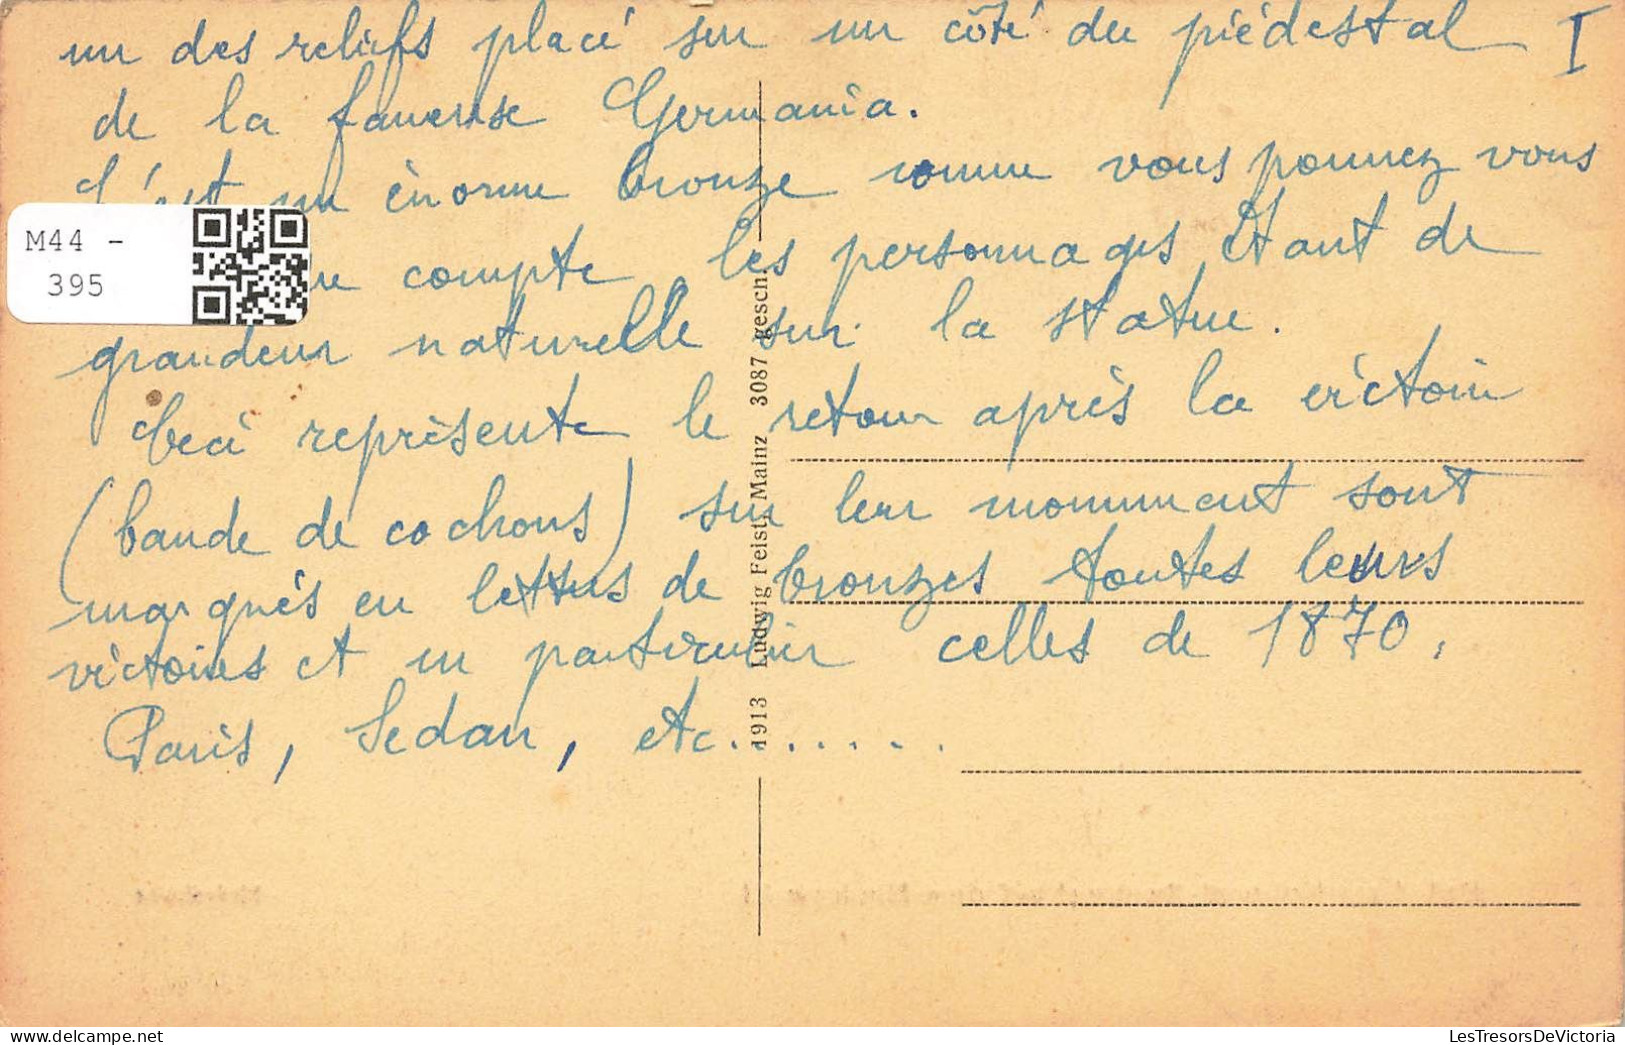 un des reliefs placé sur un côté du piédestal I
de la fameuse Germania.
C'est un énorme bronze comme vous pouvez vous
compte, les personnages étant de
grandeur naturelle sur la statue.
Ceci représente le retour après la victoire
(bande de cochons) sur leur monument sont
marqués en lettres de bronzes toutes leurs
victoires et en particulier celles de 1870,
Paris, Sedan, etc.......
M44 -
395
1913 Ludwig Feist, Mainz 3087 gesch.
LesTresorsDeVictoria